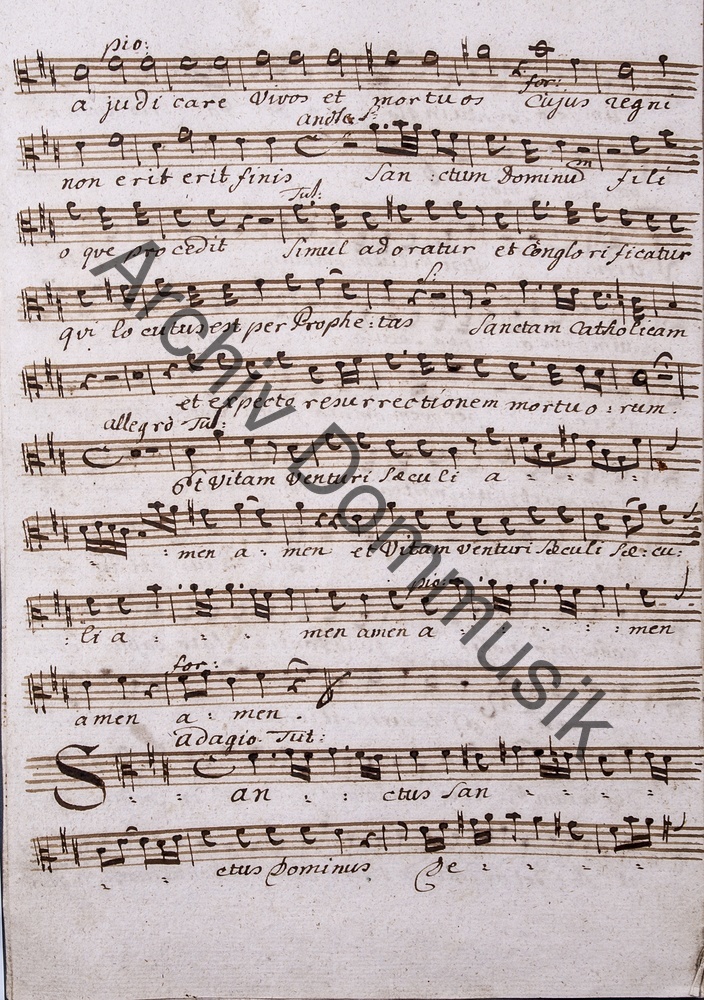 pio:
for:
a judicare Vivos et mortuos Cujus regni
andte S:
non erit erit finis San : ctum Dominum fili
Tut:
o que procedit Simul adoratur et Conglorificatur
S:
qui locutus est per Prophe : tas Sanctam Catholicam
et expecto resurrectionem mortuo : rum .
allegro Tut:
et Vitam Venturi Sæculi a
men a : men et Vitam venturi Sæculi Sæ : cu :
pio:
li a men amen a men
for:
amen a : men .
adagio Tut:
San ctus San
ctus Dominus De
Archiv Dommusik